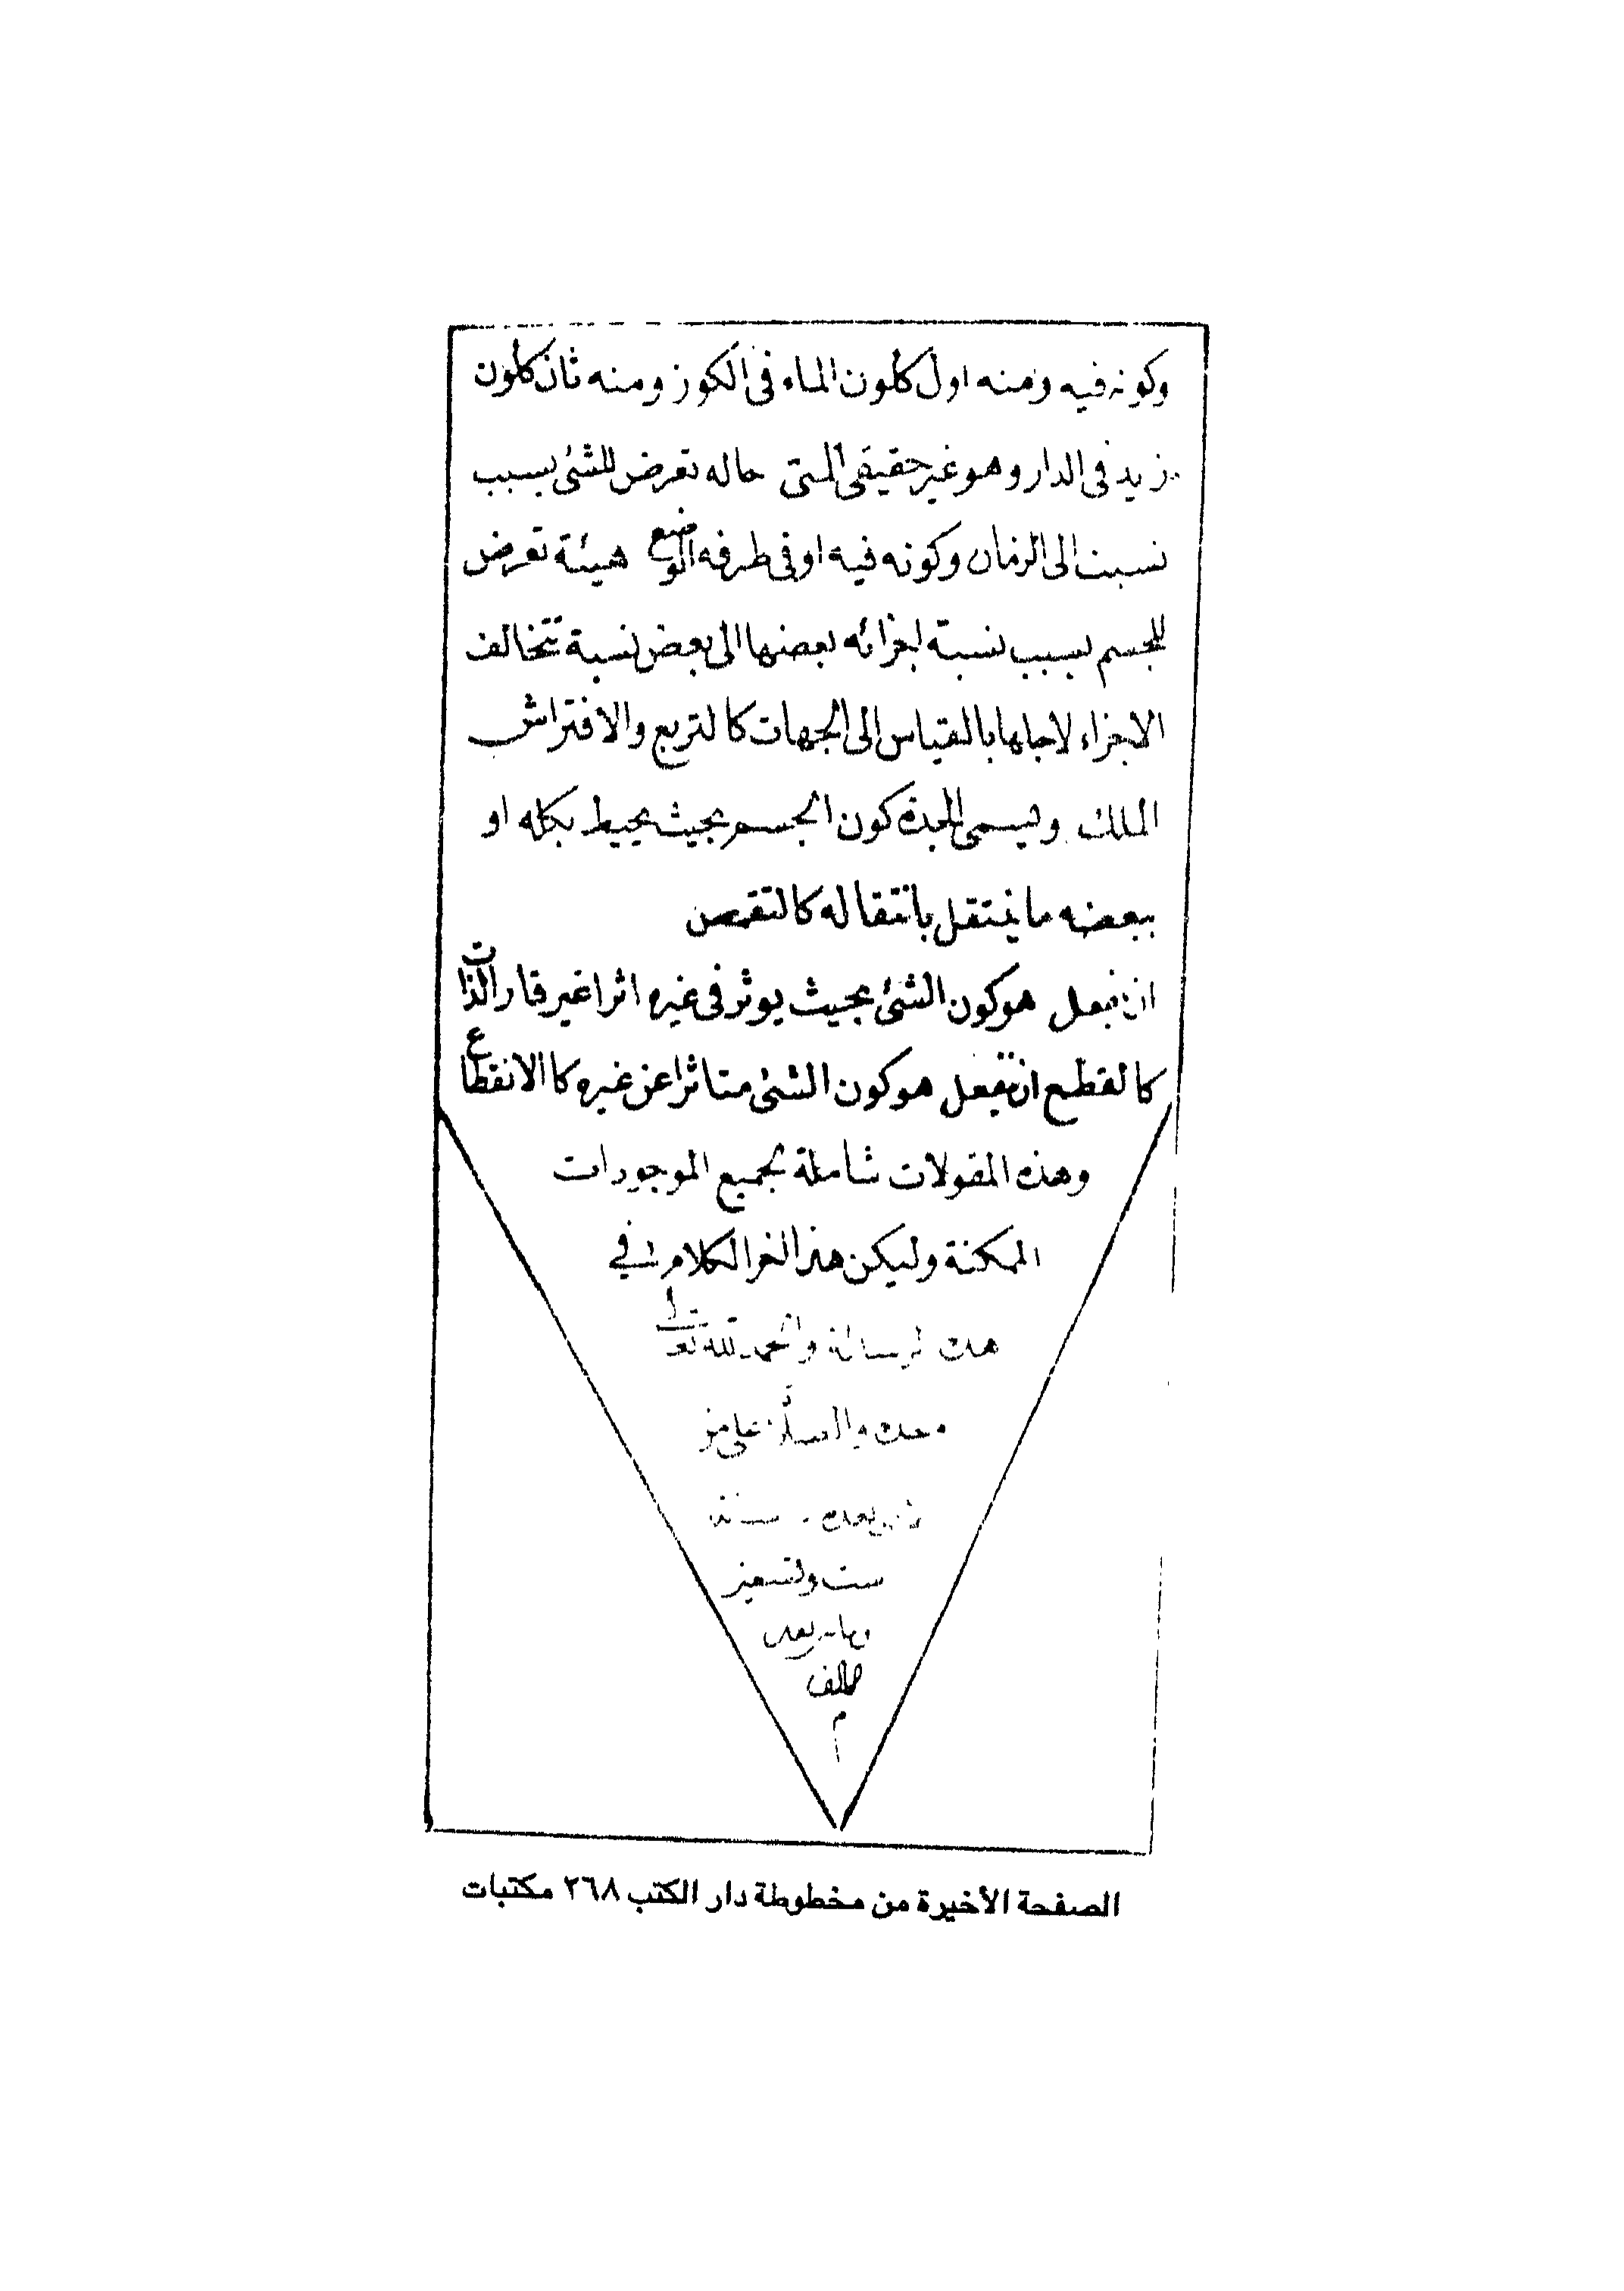 وكونه فيه ومنه اول ككون الماء فى الكوز ومنه ثان ككون
زيد فى الدار وهو غير حقيقى المتى حاله تعرض للشئ بسبب
نسبت الى الزمان وكونه فيه او فى طرفه الوضع هيئة تعرض
للجسم بسبب نسبة اجزائه بعضها الى بعض نسبة تتخالف
الاجزاء لاجلها بالقياس الى الجهات كالتربع والافتراش
الملك ويسمى الجدة كون الجسم بحيث يحيط بكله او
ببعضه ما ينتقل بانتقاله كالتقمص
ان يفعل هو كون الشئ بحيث يوثر فى غيره اثرا غير قار الذات
كالقطع ان ينفعل هو كون الشئ متاثرا عن غيره كا الانقطاع
وهذه المقولات شاملة لجميع الموجودات
الممكنة وليكن هذا اخر الكلام فى
هذه الرسالة والحمد لله تعالى
وحده والصلاة على من
بعده سنة
ست وتسعين
بعد
الف
م
الصفحة الأخيرة من مخطوطة دار الكتب ٢٦٨ مكتبات